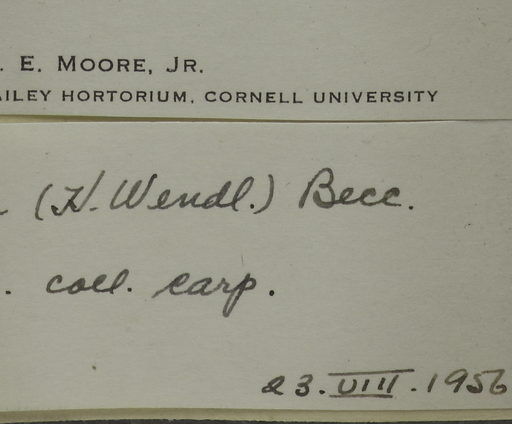 . E. MOORE, JR.
AILEY HORTORIUM, CORNELL UNIVERSITY
(H. Wendl.) Becc.
. coll. carp.
23.VIII.1956